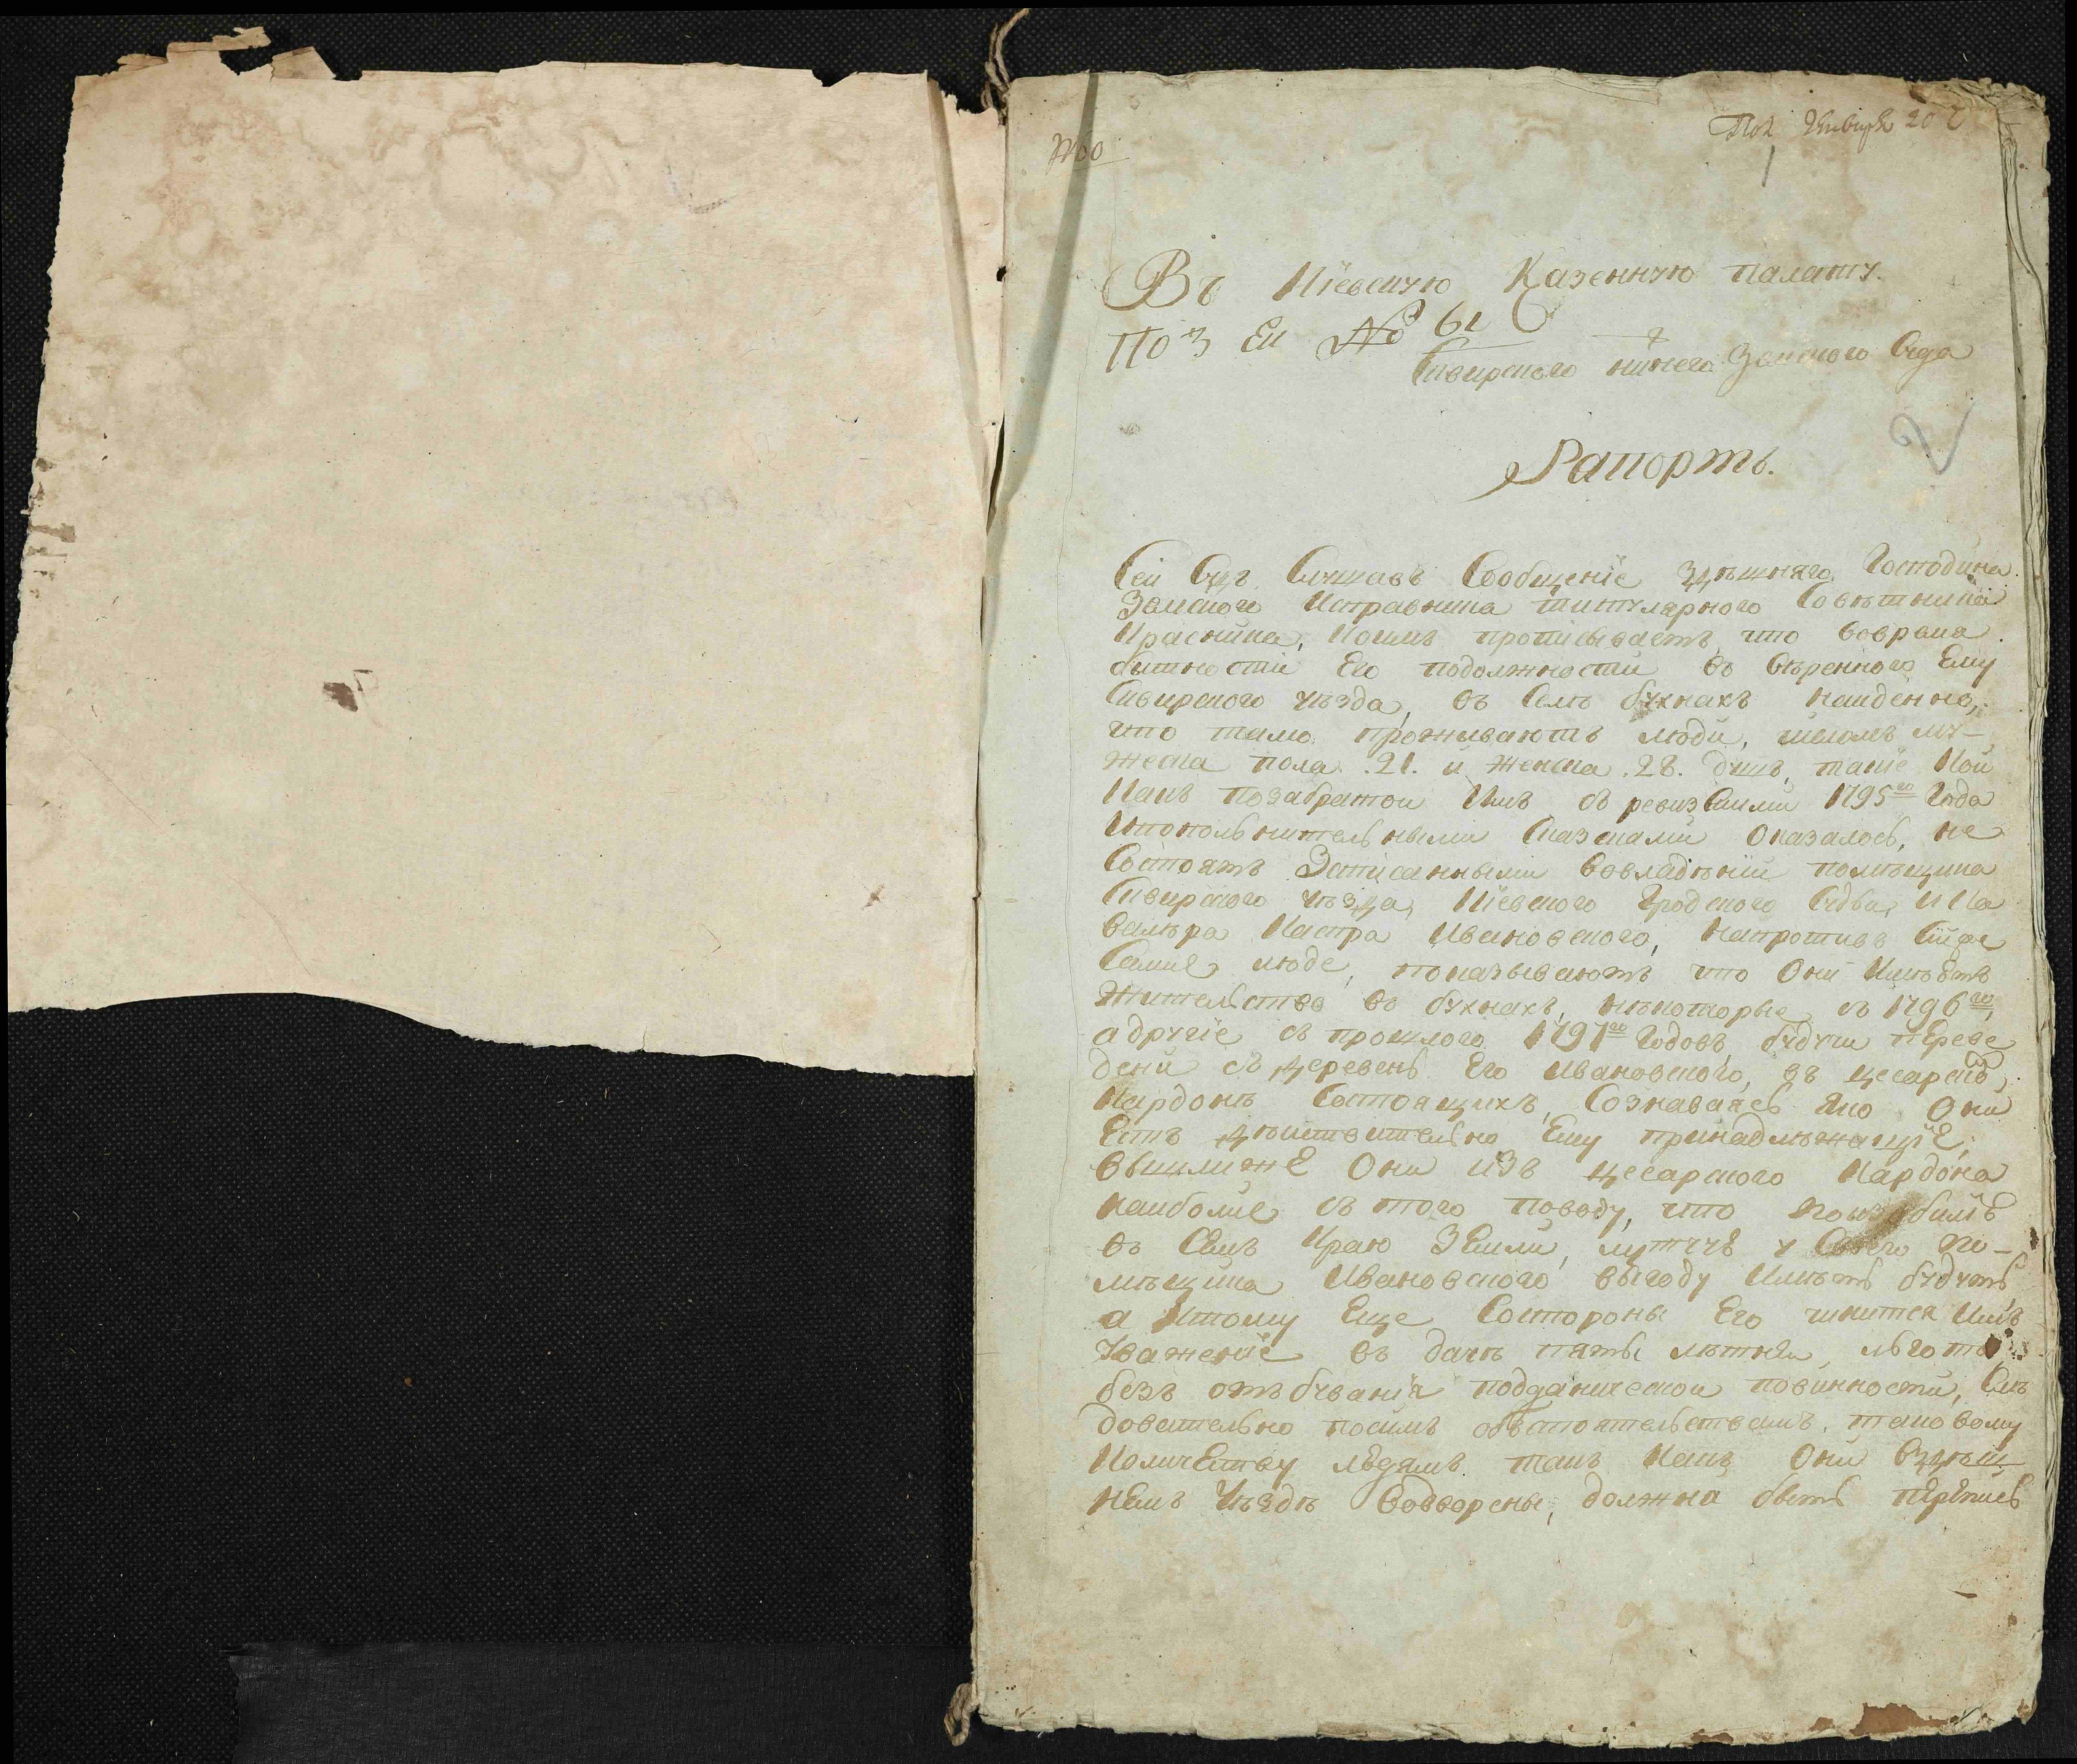 Пол Генваря 20
1
Въ Кіевскую Казенную палату.
По 3 Ек № 61
Сквирского нижнего Земского Суда
2
Рапортъ.
Сей Судъ Слушавъ Сообщеніе Здѣшняго Господина
Земского Исправника титулярного Совѣтника
Красника, Коимъ прописываетъ что вовремя
бытности Его подолжности въ ввѣренного Ему
Сквирского уѣзда, въ Селѣ букнахъ найденно,
что тамо проживаютъ люди, числомъ му-
жеска пола .21. и женска .28. душъ, такіе Кои
Какъ позабратои Имъ съ ревизскими 1795го Года
Ипополнительными Сказками оказалось, не
Состоятъ Записанными вовладѣніи помѣщика
Сквирского уѣзда, Кіевского Гродского Судьи, И Ка
валѣра Каспра Ивановского, Напротивъ Сиіи
Самие люде, показываютъ что Они Имѣютъ
Жительство въ букнахъ, нѣкоторые съ 1796го,
адругіе съ прошлого 1797го Годовъ, будучи переве
дени съ деревень Его Ивановского, въ цесарскомъ
Кардонѣ Состоящихъ, Сознаваясь яко Они
Естъ дѣйствительно Ему принадлѣжащіе,
вышлиже Они изъ цесарского Кардона
наиболие съ того поводу, что поизобилію
въ Семъ Краю Земли, лутчие у Своего по-
мѣщика Ивановского выгоду Имѣть будутъ
а Ктому Еще Состороны Его чинится Имъ
Уваженіе въ дачѣ пяти лѣтнѣи льготы
безъ отъбуванія подданической повинности, Слѣ
довательно посимъ обстоятельствамъ, таковому
Количеству людямъ такъ Какъ Они вздѣш-
немъ Уѣздѣ водворены, должна быть перепись